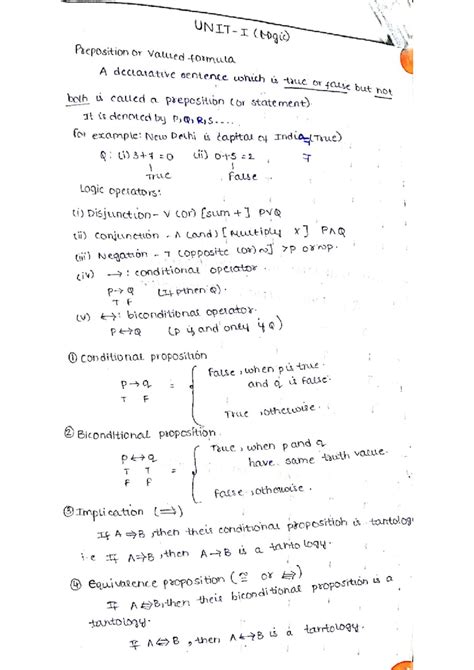 UNIT-I (Logic)
Preposition or Valued formula
A declarative sentence which is true or false but not
both is called a preposition (or statement)
It is denoted by P,Q,R,S.....
for example: New Delhi is capital of India (True)
Q: (i) 3+7=0 (ii) 0+5=2 , F
True False
Logic operators:
(i) Disjunction - V (or) [sum +] PVQ
(ii) Conjunction - Λ (and) [Multiply X] PΛQ
(iii) Negation - ¬ (opposite (or) ~] >P or ~p.
(iv) → : conditional operator.
P→Q (If p then Q).
T F
(v) ↔: biconditional operator.
P↔Q (P if and only if Q)
① Conditional proposition
False, when p is true
P→q = and q is False.
T F
True, otherwise.
② Biconditional proposition
True, when p and q
P↔q have same truth value.
T T =
F F
False, otherwise.
③ Implication (⇒)
If A⇒B, then their conditional proposition is tantology
i.e If A⇒B, then A→B is a tantology.
④ Equivalence proposition (≅ or ⇔)
If A⇔B, then their biconditional proposition is a
tantology.
If A⇔B, then A↔B is a tantology.